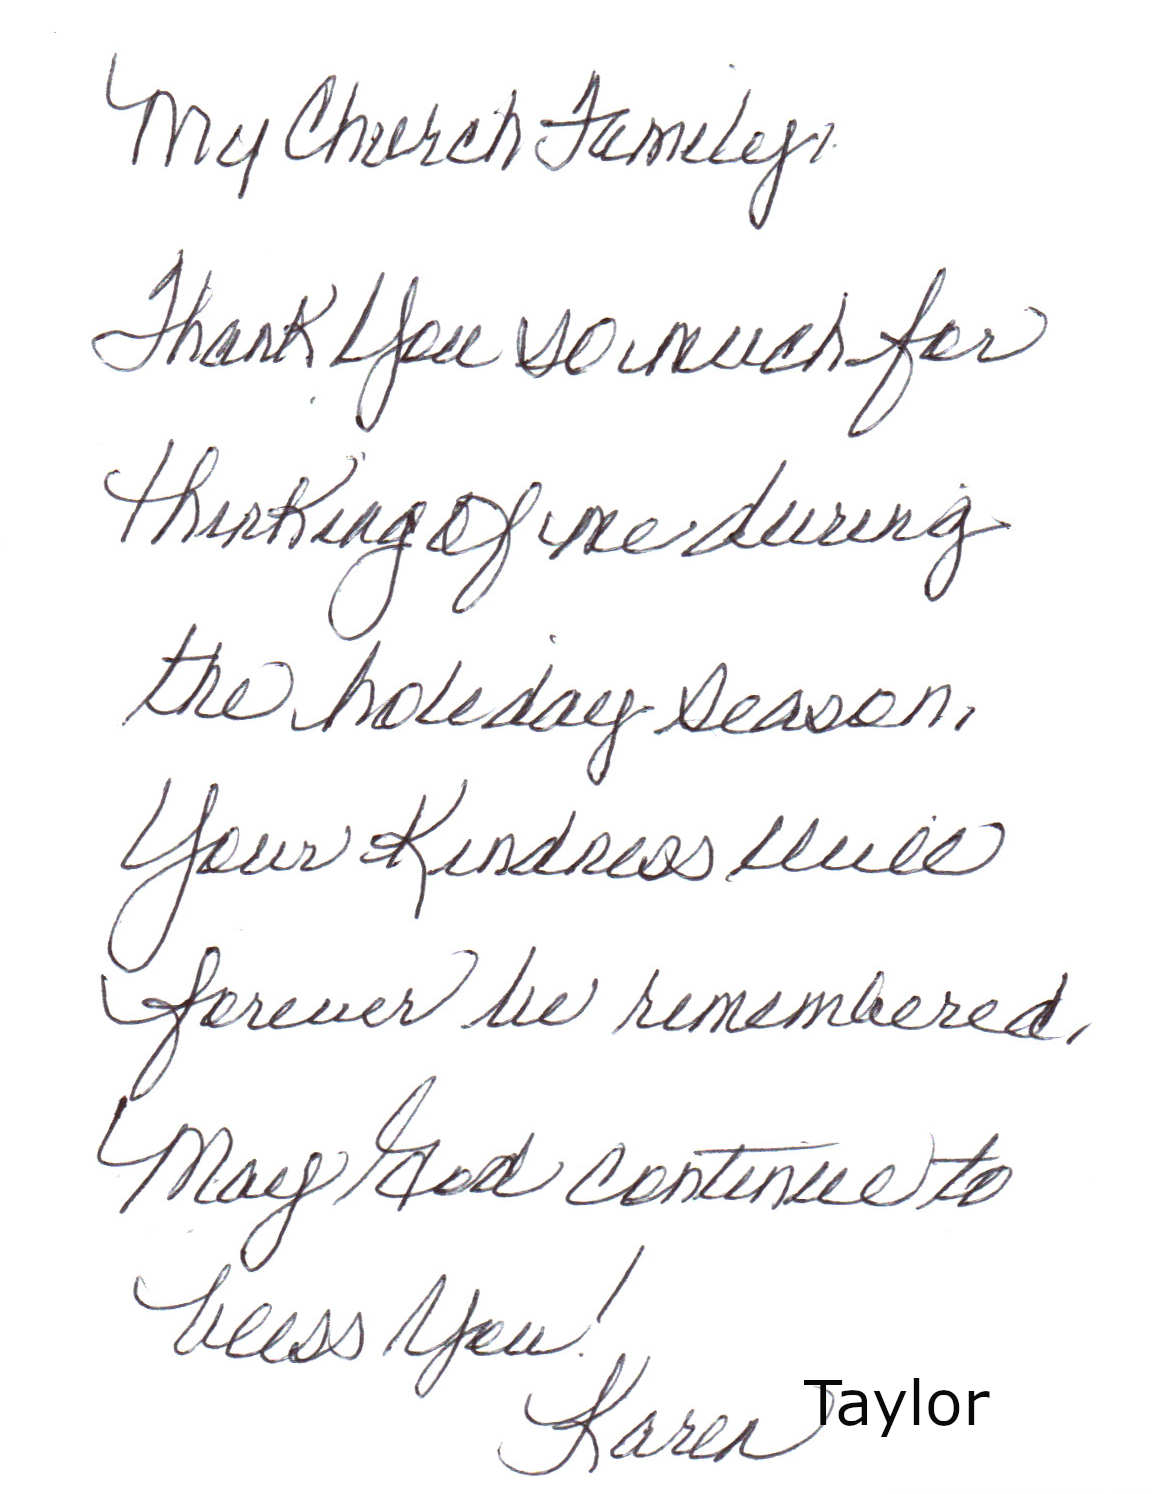 My Church Family,
Thank You so much for
thinking of me during
the holiday season.
Your Kindness will
forever be remembered.
May God continue to
bless You!
Karen Taylor